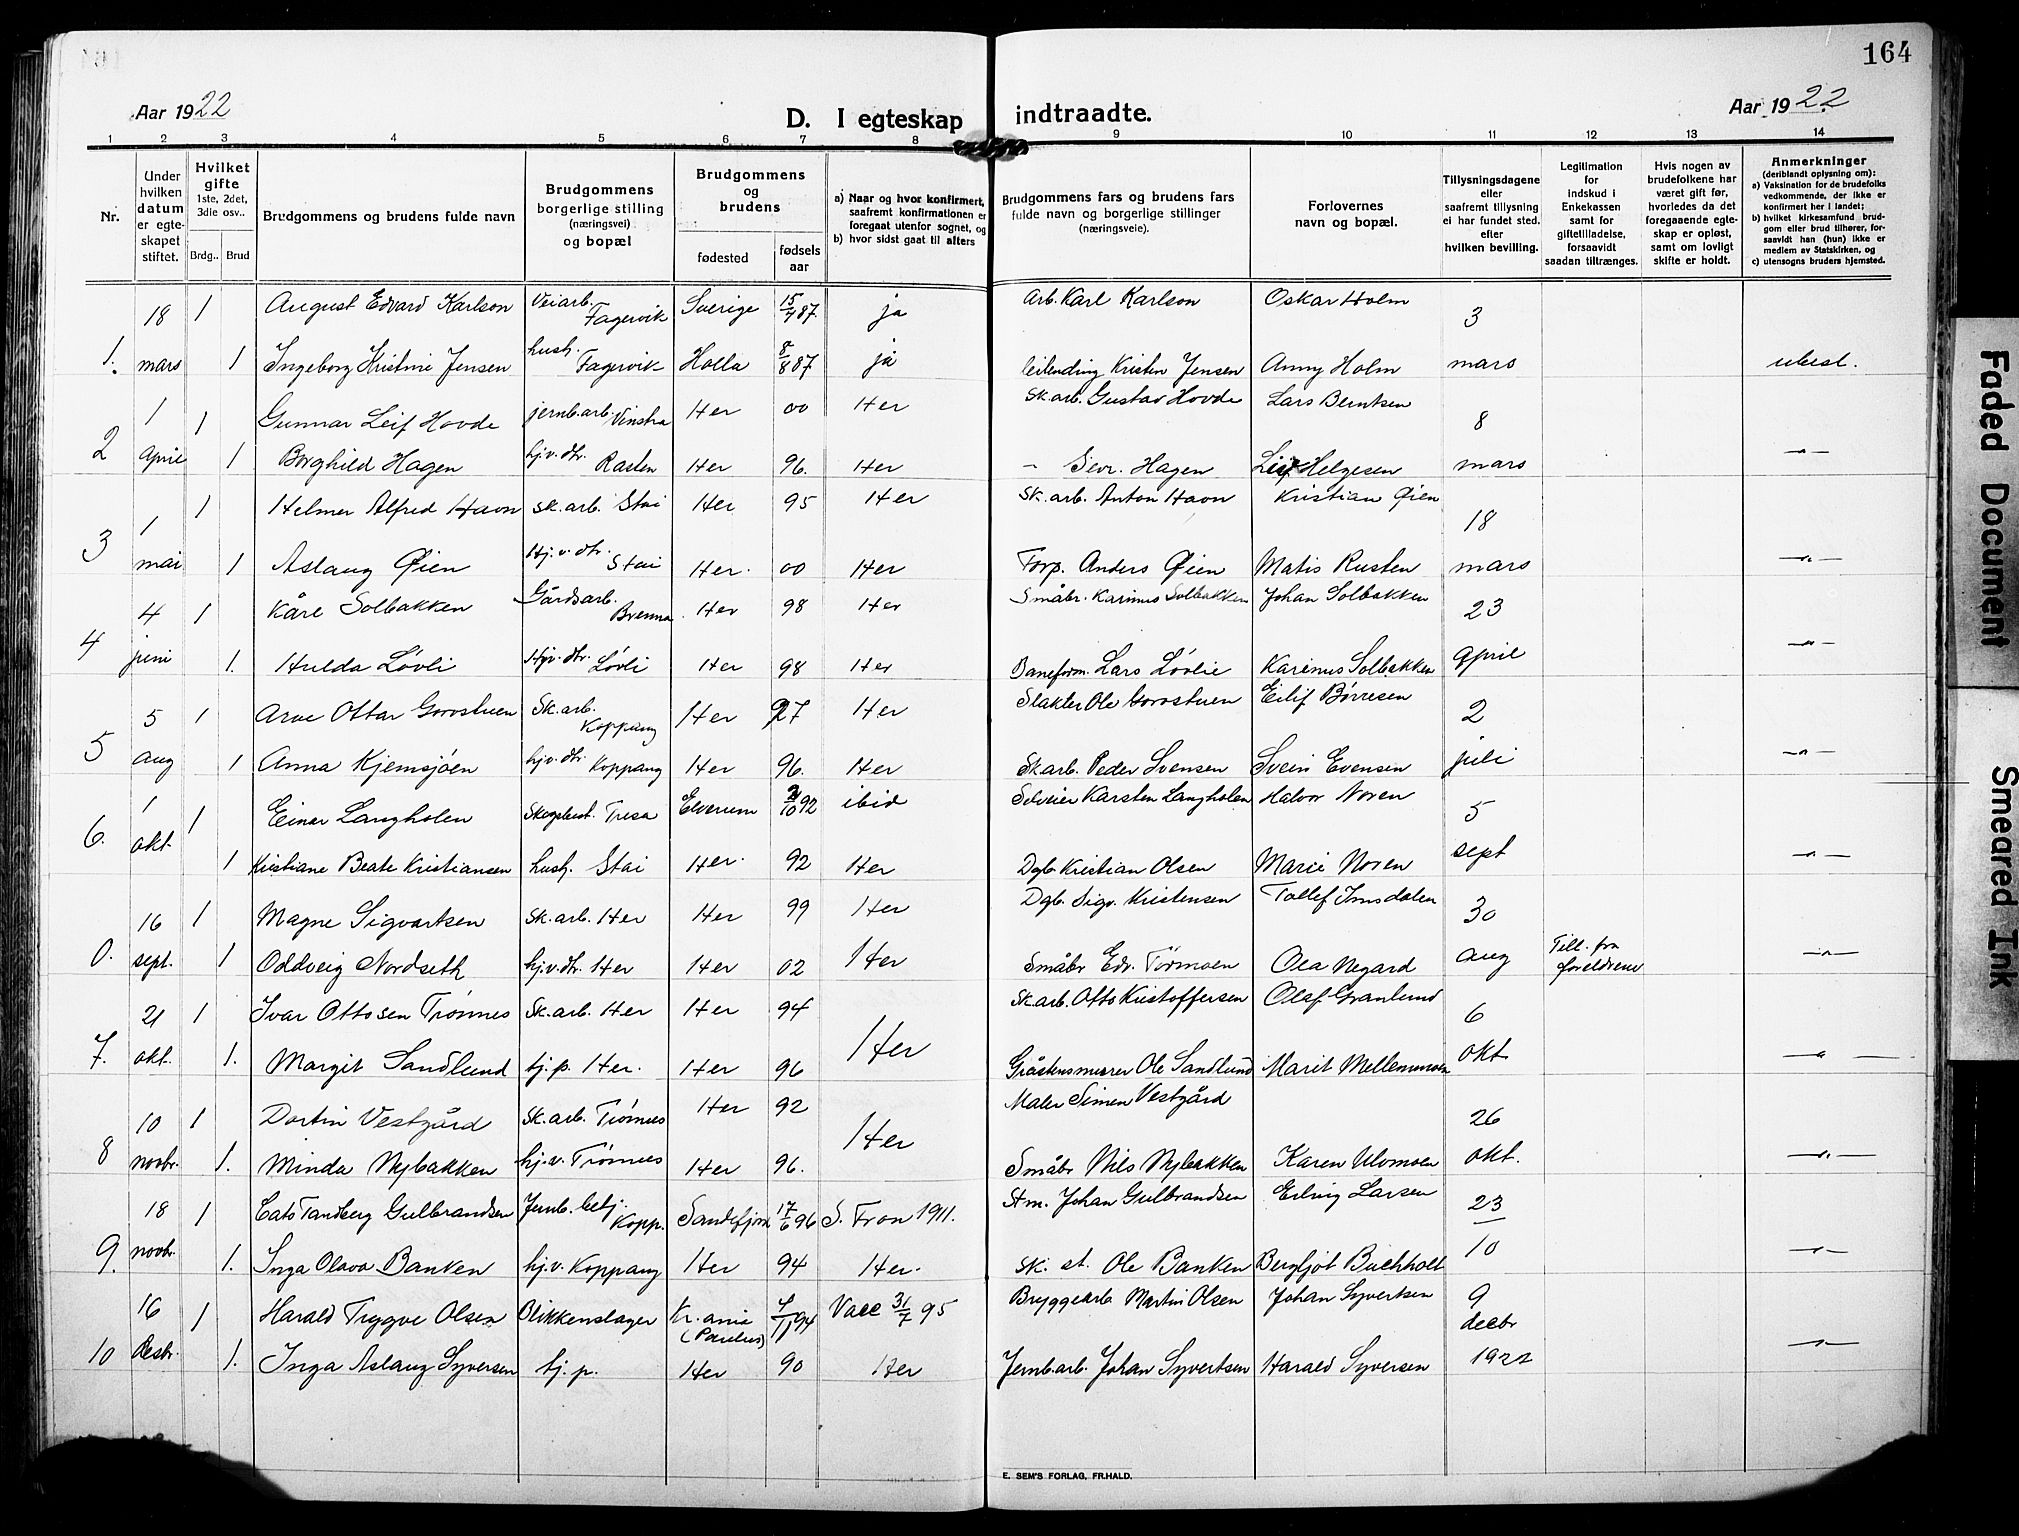 164
Aar 1922
D. I egteskap indtraadte.
Aar 1922
1 2 3 4 5 6 7 8 9 10 11 12 13 14
Nr.
Under hvilken datum er egteskapet stiftet.
Hvilket gifte 1ste, 2det, 3die osv..
Brdg.. Brud
Brudgommens og brudens fulde navn
Brudgommens borgerlige stilling (næringsvei) og bopæl
Brudgommens og brudens
fødested
fødselsaar
a) Naar og hvor konfirmert, saafremt konfirmationen er foregaat utenfor sognet, og
b) hvor sidst gaat til alters
Brudgommens fars og brudens fars fulde navn og borgerlige stillinger (næringsveie).
Forlovernes navn og bopæl.
Tillysningsdagene eller saafremt tillysning ei har fundet sted. efter hvilken bevilling.
Legitimation for indskud i Enkekassen samt for giftetilladelse, forsaavidt saadan tiltrænges.
Hvis nogen av brudefolkene har været gift før, hvorledes da det foregaaende egteskap er opløst, samt om lovligt skifte er holdt.
Anmerkninger (deriblandt oplysning om):
a) Vaksination for de brudefolks vedkommende, der ikke er konfirmert her i landet;
b) hvilket kirkesamfund brudgom eller brud tilhører, forsaavidt han (hun) ikke er medlem av Statskirken, og
c) utensogns bruders hjemsted.
18 1 August Edvard Karlson Veiarb. Fagervik Sverige 15/4 87 ja Arb. Karl Karlson Oskar Holm 3
1. mars 1 Ingeborg Kristine Jensen hush. Fagervik Holla 8/8 87 ja leilending Kristen Jensen Anny Holm mars ubesl.
1 1 Gunnar Leif Hovde jernb.arb. Vinstra Her 00 Her Sk.arb. Gustav Hovde Lars Berntsen 8
2 April 1 Borghild Hagen hjv. dtr. Rasten Her 96. Her – Sevr. Hagen Leif Helgesen mars –"–
1 1 Helmer Alfred Havn sk. arb. Stai Her 95 Her Sk. arb. Anton Havn Kristian Øien 18
3 mai 1 Aslaug Øien Hj. v. dtr. Stai Her. 00 Her Torp. Anders Øien Matis Rusten mars –"–
4 1 Kåre Solbakken Gårdsarb. Brenna Her 98 Her Småbr. Karinus Solbakken Johan Solbakken 23
4 juni 1. Hulda Løvli Hjv. dtr. Løvli Her 98 Her Baneform. Lars Løvlie Karinus Solbakken April –"–
5 1 Arve Ottar Gorostuen Sk. arb. Koppang Her 97 Her Slakter Ole Gorostuen Eilif Børresen 2
5 aug 1 Anna Kjemsjøen hjv. dtr. Koppang Her 96. Her Skarb. Peder Svensen Svein Evensen juli –"–
1 1 Einar Langholen Skogbest. Tresa Elverum 2/10 92 ibid Selveier Karsten Langholen Halvor Noren 5
6. okt 1 Kristiane Beate Kristiansen hush. Stai Her. 92 Her Dgb Kristian Olsen Marie Noren sept –"–
16 1 Magne Sigvartsen sk. arb. Her Her 99 Her Dgb. Sigv. Kristensen Tollef Imsdalen 30
0. sept. 1 Oddveig Nordseth hj.v.dtr. Her Her 02 Her Småbr Edv. Tørmoen Ola Negard aug Till. fra foreldrene –"–
21 1 Ivar Ottosen Trønnes Sk. arb. Her Her 94 Sk. arb. Otto Kristoffersen Olaf Granlund 6
7. okt. 1. Margit Sandlund hj. p. Her. Her 96 Her Gråstensmurer Ole Sandlund Marit Mellemmoen okt –"–
10 1 Dortin Vestgård Sk. arb. Trønnes Her 92 Maler Simen Vestgård 26
8 novbr. 1. Minda Nybakken hj. v. Trønnes Her 96. Her Småbr Nils Nybakken Karen Ulvmoen okt. –"–
18 1 Cato Tandberg Gulbrandsen Jernb. betj. Kopp. Sandefjord 17/6 96 S. Fron 1911. Stm. Johan Gulbrandsen Erling Larsen 23
9. novbr. 1. Inga Olava Banken hj. v. Koppang Her 94 Her. sk. st. Ole Banken Bergljot Buchholt 10 –"–
16 1 Harald Trygve Olsen Blikkenslager Kr. ania (Paulus) 4/11 94 Vacc 31/7 95 Bryggearb Martin Olsen Johan Syvertsen 9 decbr
10 Desbr. 1. Inga Aslaug Syversen hj. p. Her 90 Her Jernb. arb. Johan Syvertsen Harald Syversen 1922 –"–
E. SEM'S FORLAG, FR.HALD.
Faded Document
Smeared Ink